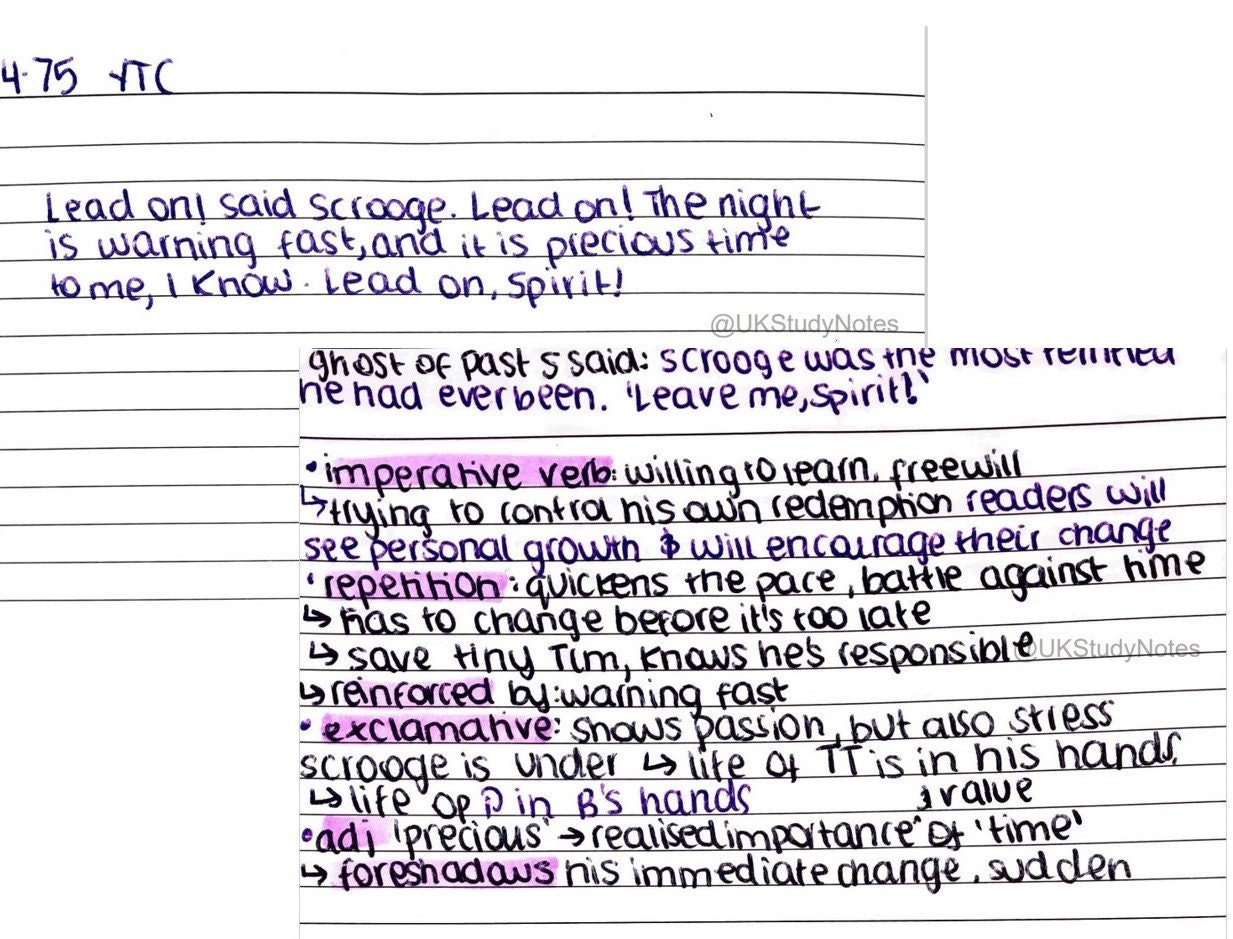 4.75 YTC
Lead on! said Scrooge. Lead on! The night
is warning fast, and it is precious time
to me, I know. Lead on, Spirit!
@UKStudyNotes
ghost of past S said: Scrooge was the most
he had ever been. 'Leave me, Spirit!'
• imperative verb: willing to learn, freewill
↳ trying to control his own redemption readers will
see personal growth & will encourage their change
• repetition: quickens the pace, battle against time
↳ has to change before it's too late
↳ save tiny Tim, knows he's responsible
@UKStudyNotes
↳ reinforced by: warning fast
• exclamative: shows passion, but also stress
scrooge is under ↳ life of TT is in his hands,
↳ life of P in B's hands
& value
• adj 'precious' → realised importance^ of 'time'
↳ foreshadows his immediate change, sudden